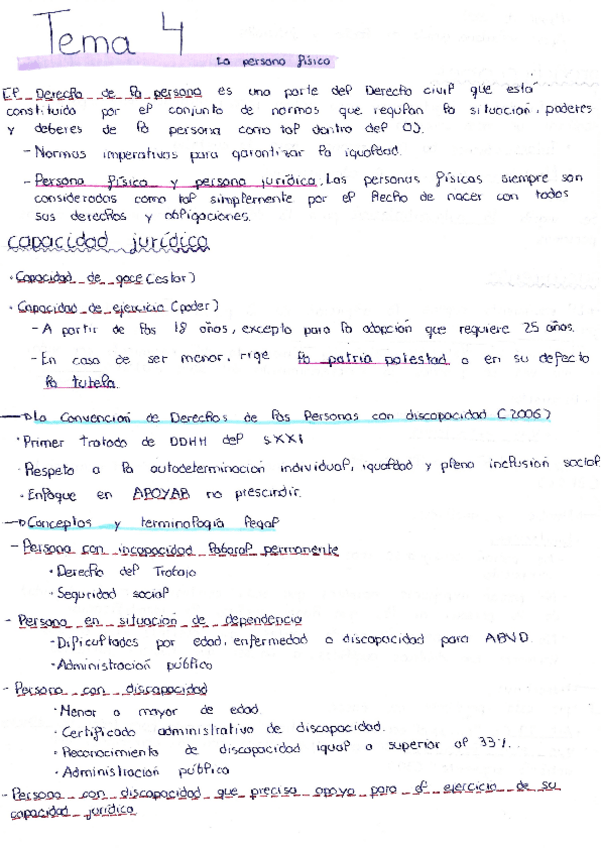 Tema 4
La persona física
El Derecho de la persona es una parte del Derecho civil que está
constituida por el conjunto de normas que regulan la situación, poderes
y deberes de la persona como tal dentro del OJ.
- Normas imperativas para garantizar la igualdad.
- Persona física y persona jurídica. Las personas físicas siempre son
consideradas como tal simplemente por el hecho de nacer con todos
sus derechos y obligaciones.
capacidad jurídica
· Capacidad de goce (estar)
· Capacidad de ejercicio (poder)
- A partir de los 18 años, excepto para la adopción que requiere 25 años.
- En caso de ser menor, rige la patria potestad o en su defecto
la tutela.
→ La Convención de Derechos de las Personas con discapacidad (2006)
· Primer tratado de DDHH del SXXI
· Respeto a la autodeterminación individual, igualdad y plena inclusión social
· Enfoque en APOYAR no prescindir.
→ Conceptos y terminología legal
- Persona con incapacidad laboral permanente
· Derecho del Trabajo
· Seguridad social
- Persona en situación de dependencia
· Dificultades por edad, enfermedad o discapacidad para ABVD.
· Administración pública
- Persona con discapacidad
· Menor o mayor de edad.
· Certificado administrativo de discapacidad.
· Reconocimiento de discapacidad igual o superior al 33%.
· Administración pública
- Persona con discapacidad que precisa apoyo para el ejercicio de su
capacidad jurídica